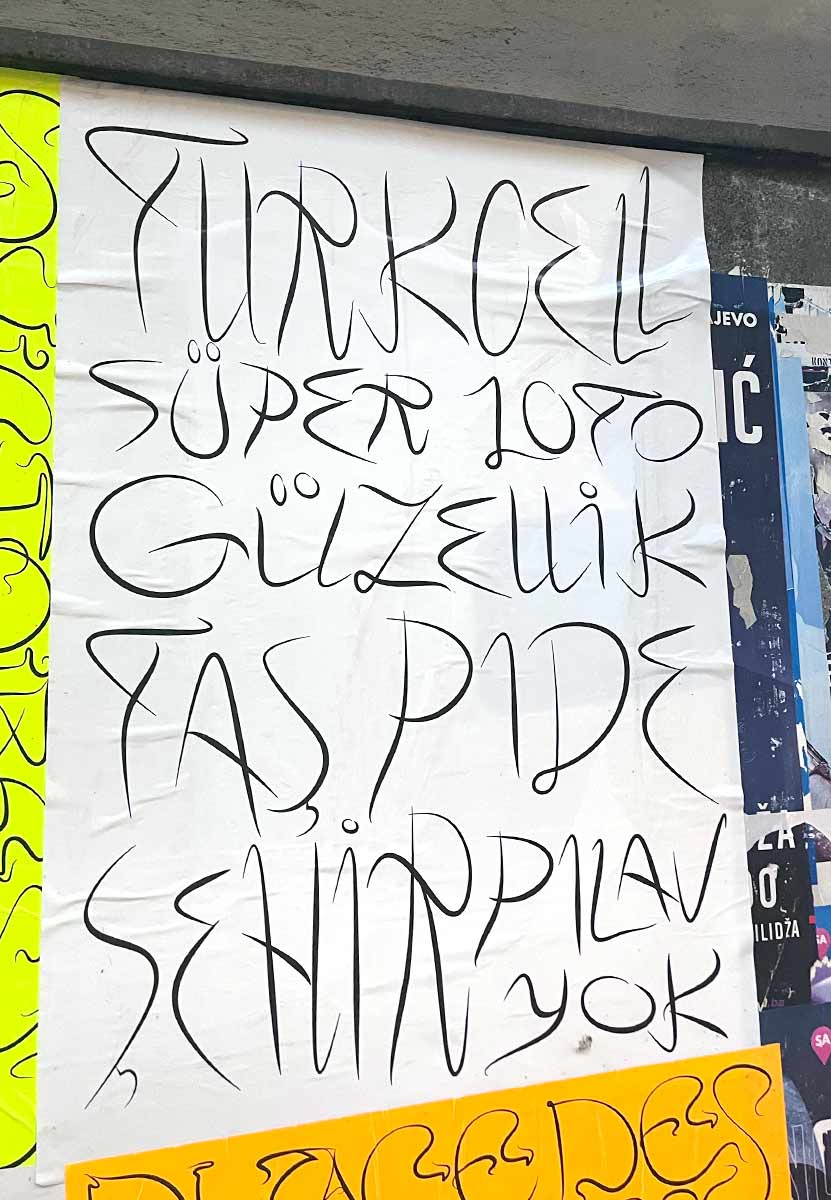 TURKCELL
SÜPER LOTO
GÜZELLİK
TAŞ PIDE
ŞEHİR PILAV
YOK
PLACE DES
JEVO
IĆ
ILIDŽA
SA
SA